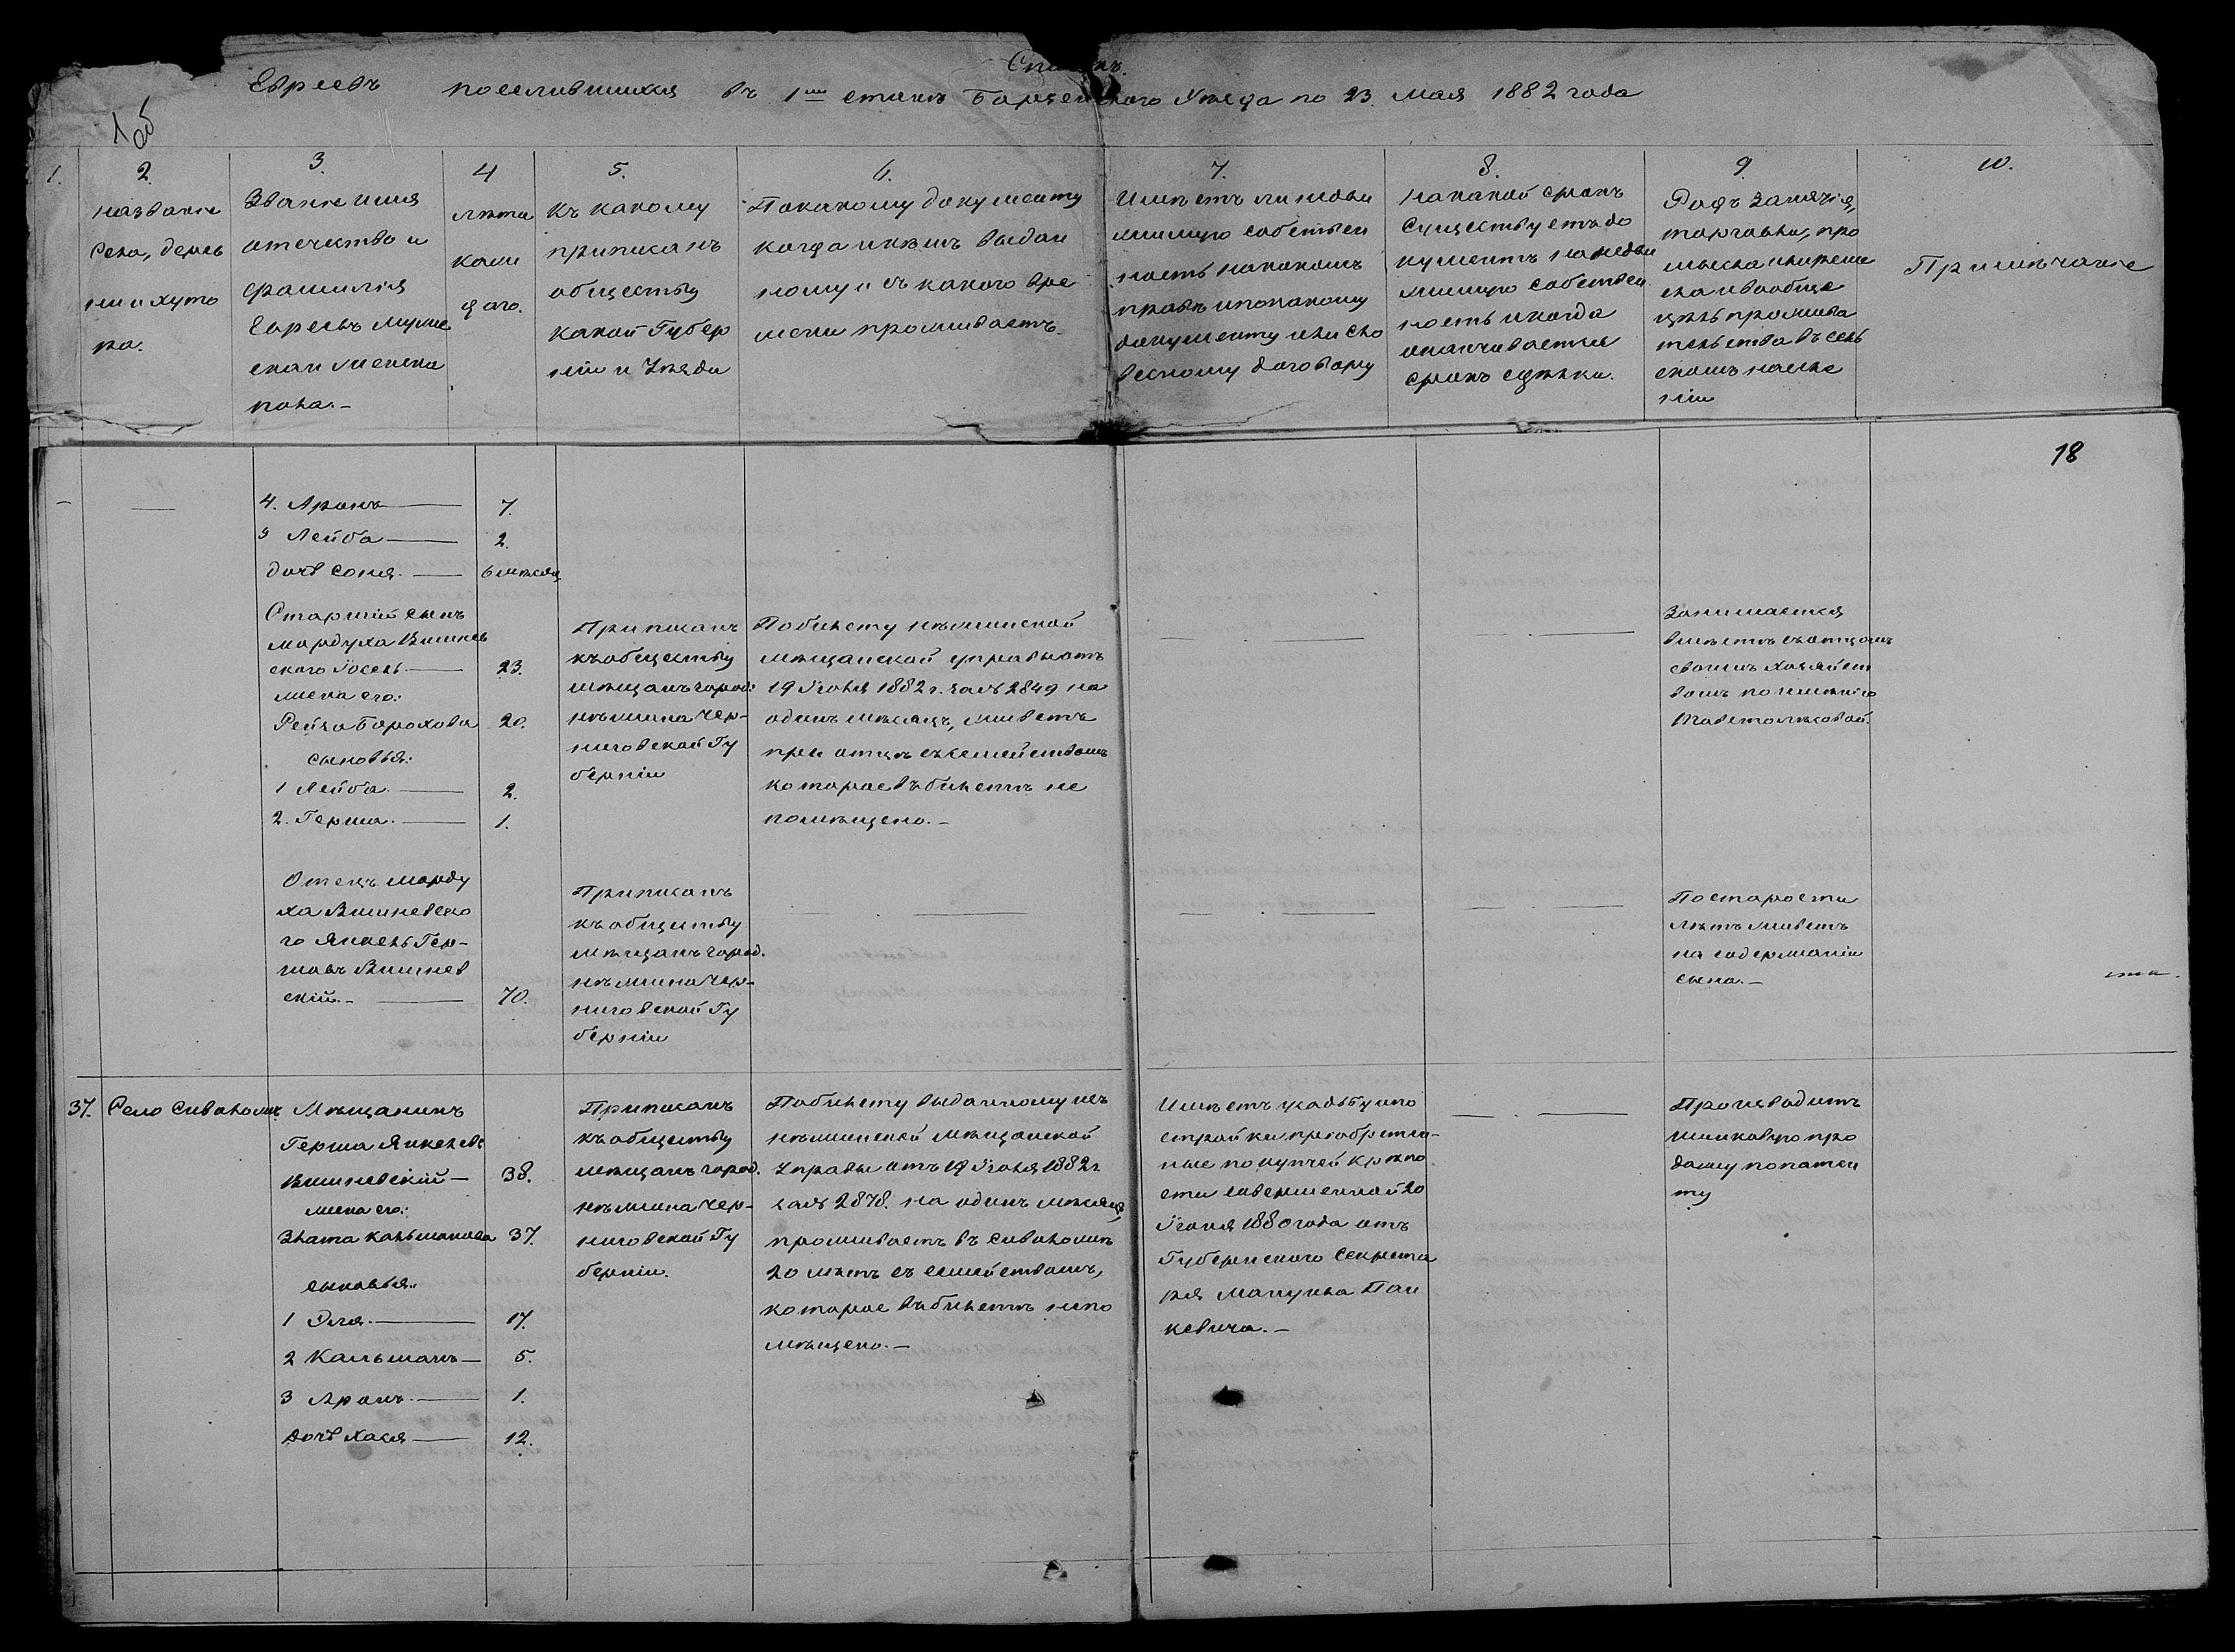 Списокъ
Евреевъ поселившихся въ 1мъ станѣ Борзенского Уѣзда по 23 мая 1882 года
1 об
1.
2.
названіе
Села, дерев
ни и хуто
ра.
3.
Званіе имя
отечество и
фамилія
Евреевъ муже
скаго и женска
пола.-
4
лѣта
каж
даго.
5.
къ какому
приписанъ
обществу
какой Губер
ніи и Уѣзда
6.
По какому документу
когда и кѣмъ выдан
ному и съ какого вре
мени проживаетъ.
7.
Имѣетъ ли недви
жимую собствен
ность на какомъ
правѣ и по какому
документу или сло
весному договору
8.
на какой срокъ
Существуетъ до
кументъ на недви
жимую собствен
ность и когда
оканчивается
срокъ сдѣлки.
9
Родъ занятія,
торговли, про
мысла и ремес
ла и вообще
цѣль прожива
тельства въ сель
скомъ населе
ніи
10.
Примѣчаніе
18
4. Аронъ
7.
5 Лейба
2.
дочь Соня.
6 мѣсяц
Старшій сынъ
мордуха Вишнев
ского Іосель
23.
жена его:
Рейза Борохова
20.
сыновья:
1 Лейба.
2.
2. Герша.
1.
Приписанъ
къ обществу
мѣщанъ город:
нѣжина Чер-
ниговской Гу
берніи
По билету нѣжинской
мѣщанской управы отъ
19 Іюня 1882 г. за № 2849 на
одинъ мѣсяцъ, живетъ
при отцѣ съ семействомъ
которое въ билетъ не
помѣщено.-
Занимается
вмѣстѣ съ отцомъ
своимъ хозяйст
вомъ по имѣнію
Отецъ морду
ха Вишневско
го Янкель Гер-
шовъ Вишнев
скій.-
70.
Приписанъ
къ обществу
мѣщанъ город.
нѣжина Чер-
ниговской Гу
берніи
По старости
лѣтъ живетъ
на содержаніи
сына.-
37.
Село Сиволожъ
Мѣщанинъ
Герша Янкелевъ
Вишневскій -
38.
жена его:
Злата Кальманова
37.
сыновья:
1 Эля.
17.
2 Кальманъ
5.
3 Аронъ.
1.
дочь Хася
12.
Приписанъ
къ обществу
мѣщанъ город.
нѣжина Чер-
ниговской Гу
берніи.
По билету выданному изъ
нѣжинской мѣщанской
Управы отъ 19 Іюня 1882 г
за № 2878. на одинъ мѣсяцъ,
проживаетъ въ Сиволожѣ
20 лѣтъ съ семействомъ,
которое въ билетъ непо
мѣщено.-
Имѣетъ усадьбу и по
стройки пріобретен-
ные по купчей крѣпо
сти совершенной 20
Іюня 1880 года отъ
Губернского Секрета
ря Мануила Пан
кевича.-
Производитъ
шинковую про
дажу по патен
ту